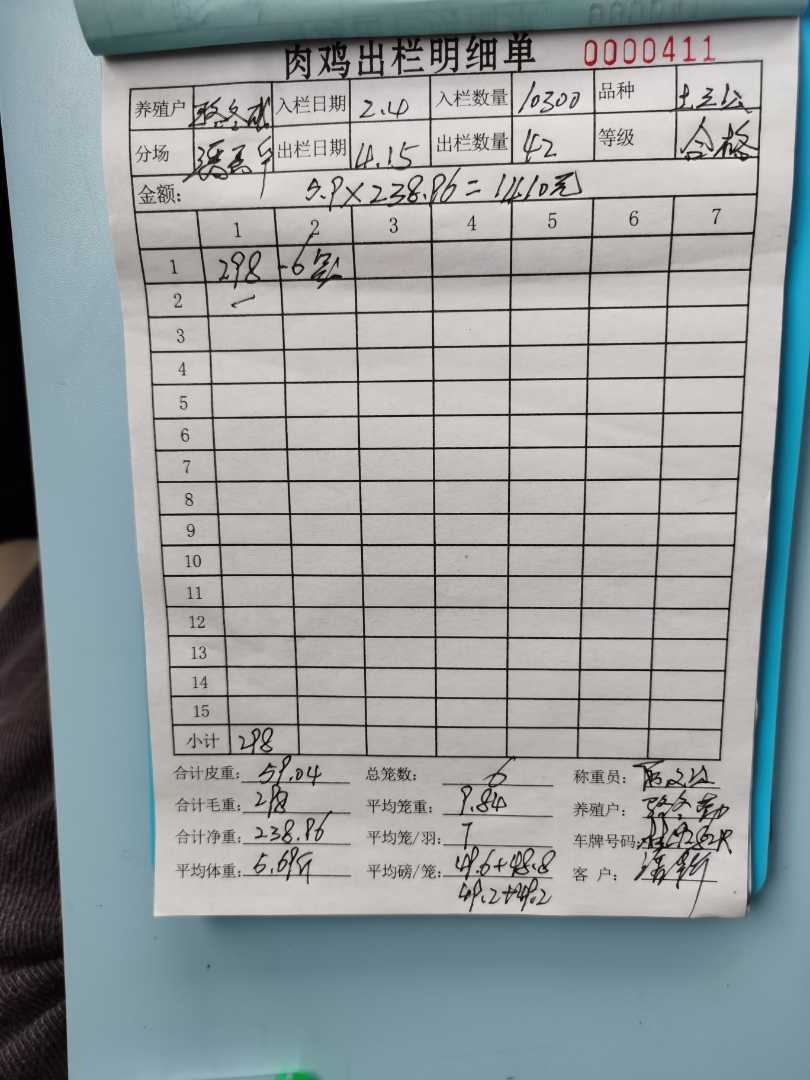 肉鸡出栏明细单 0000411
养殖户 入栏日期 2.4 入栏数量 10300 品种 土三公
分场 出栏日期 4.15 出栏数量 42 等级 合格
金额: 5.9×238.96=1410元
1 2 3 4 5 6 7
1 298 -6
2
3
4
5
6
7
8
9
10
11
12
13
14
15
小计 298
合计皮重: 59.04 总笼数: 6 称重员:
合计毛重: 298 平均笼重: 9.84 养殖户:
合计净重: 238.96 平均笼/羽: 7 车牌号码:
平均体重: 5.69斤 平均磅/笼: 49.6+48.8 客 户:
49.2+49.2